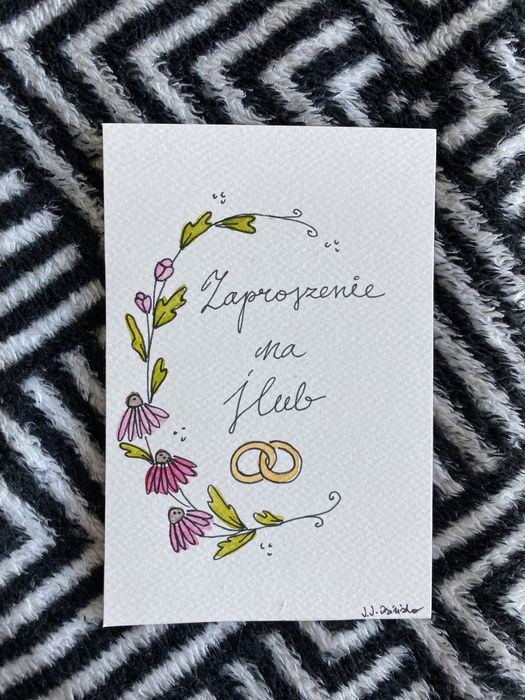 Zaproszenie
na
ślub
J.J.